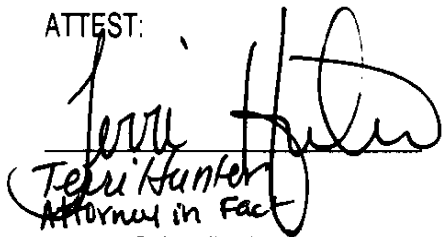 ATTEST:
Terri Hunter
Terri Hunter
Attorney in Fact